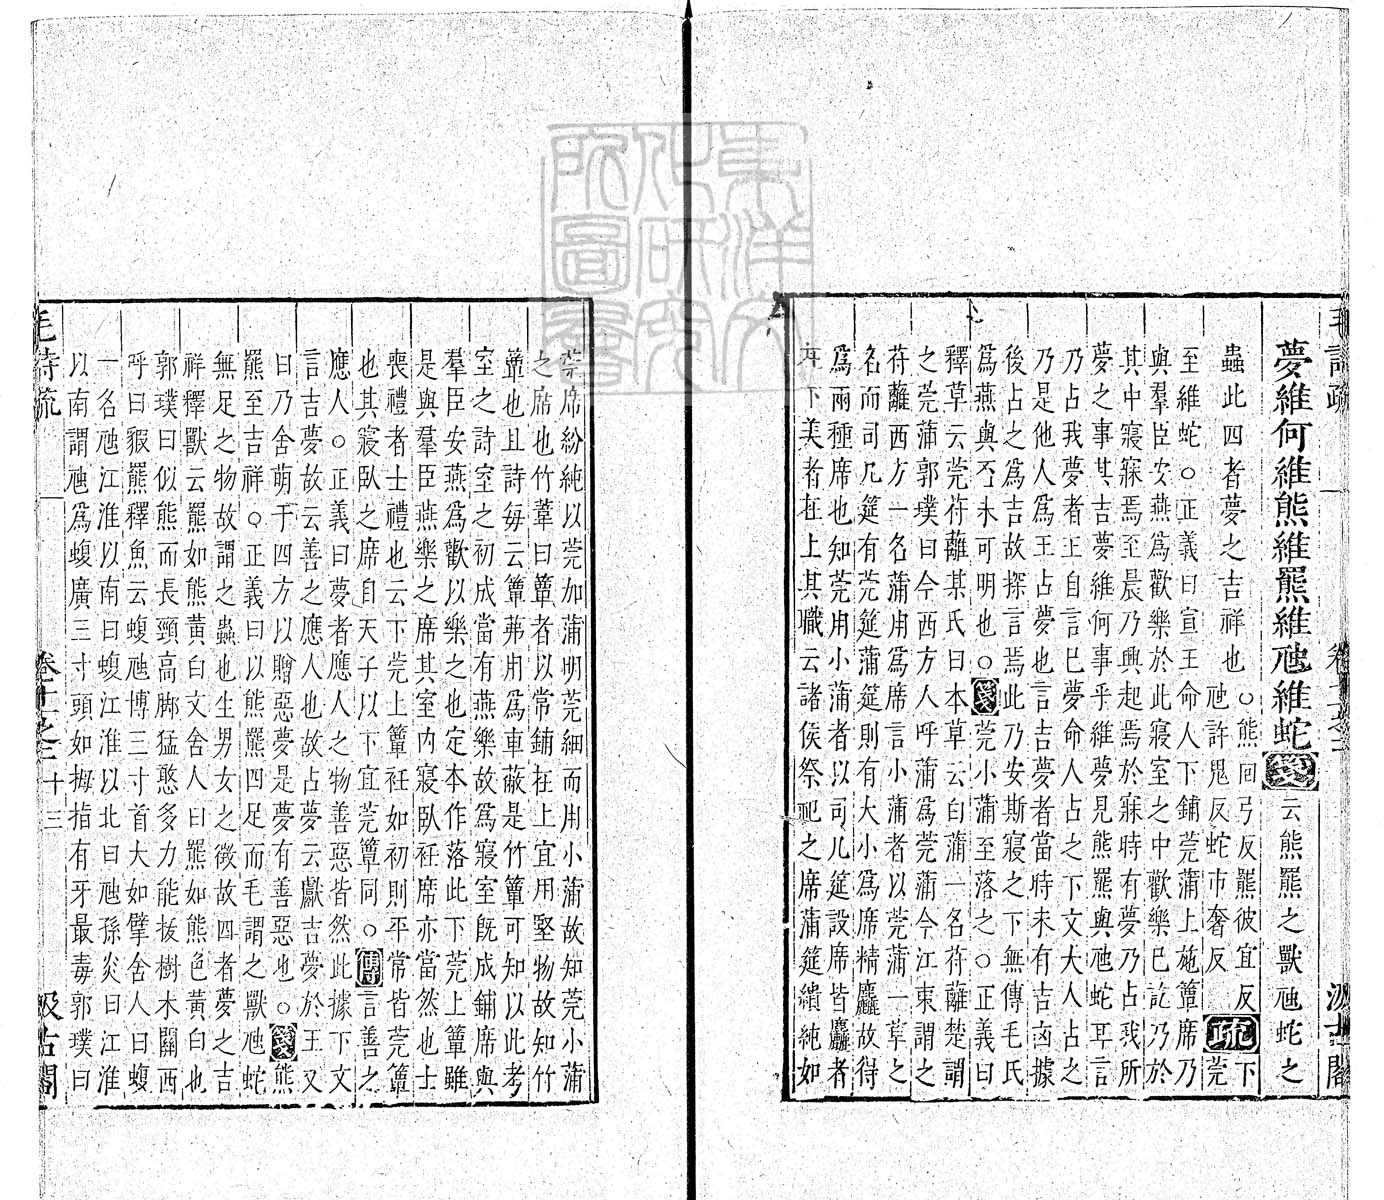 夢維何維熊維羆維虺維蛇箋云熊羆之獸虺蛇之
蟲此四者夢之吉祥也○熊回弓反羆彼宜反虺許鬼反蛇市奢反疏下莞
至維蛇○正義曰宣王命人下鋪莞蒲上施簟席乃
與羣臣安燕爲歡樂於此寢室之中歡樂巳訖乃於
其中寢寐焉至晨乃興起焉於寐時有夢乃占我所
夢之事其吉夢維何事乎維夢見熊羆與虺蛇耳言
乃占我夢者王自言巳夢命人占之下文大人占之
乃是他人爲王占夢也言吉夢者當時未有吉凶據
後占之爲吉故探言焉此乃安斯寢之下無傳毛氏
爲燕與否未可明也○箋莞小蒲至落之○正義曰
釋草云莞苻蘺某氏曰本草云白蒲一名苻蘺楚謂
之莞蒲郭璞曰今西方人呼蒲爲莞蒲今江東謂之
苻蘺西方一名蒲用爲席言小蒲者以莞蒲一草之
名而司几筵有莞筵蒲筵則有大小爲席精麤故得
爲兩種席也知莞用小蒲者以司几筵設席皆麤者
在下美者在上其職云諸侯祭祀之席蒲筵繢純如
莞席紛純以莞加蒲明莞細而用小蒲故知莞小蒲
之席也竹葦曰簟者以常鋪在上宜用堅物故知竹
簟也且詩每云簟茀用爲車蔽是竹簟可知以此考
室之詩室之初成當有燕樂故爲寢室既成鋪席與
羣臣安燕爲歡以樂之也定本作落此下莞上簟雖
是與羣臣燕樂之席其室內寢臥衽席亦當然也士
喪禮者士禮也云下莞上簟衽如初則平常皆莞簟
也其寢臥之席自天子以下宜莞簟同○傳言善之
應人○正義曰夢者應人之物善惡皆然此據下文
言吉夢故云善之應人也故占夢云獻吉夢於王又
曰乃舍萌于四方以贈惡夢是夢有善惡也○箋熊
羆至吉祥○正義曰以熊羆四足而毛謂之獸虺蛇
無足之物故謂之蟲也生男女之徵故四者夢之吉
祥釋獸云羆如熊黃白文舍人曰羆如熊色黃白也
郭璞曰似熊而長頸高脚猛憨多力能拔樹木關西
呼曰貑羆釋魚云蝮虺博三寸首大如擘舍人曰蝮
一名虺江淮以南曰蝮江淮以北曰虺孫炎曰江淮
以南謂虺爲蝮廣三寸頭如拇指有牙最毒郭璞曰
毛詩疏
卷十一之二
十三
汲古閣